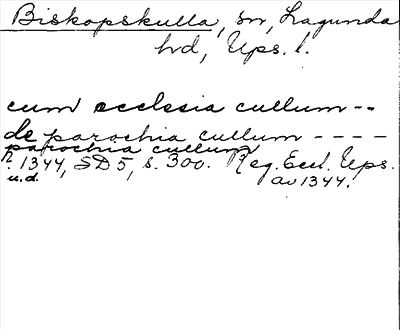 Biskopskulla, sn, Lagunda
hd, Ups. l.
cum ecclesia cullum --
de parochia cullum ----
parochia cullum
1344, SD 5, s. 300. Reg. Eccl. Ups.
u.d. av 1344.